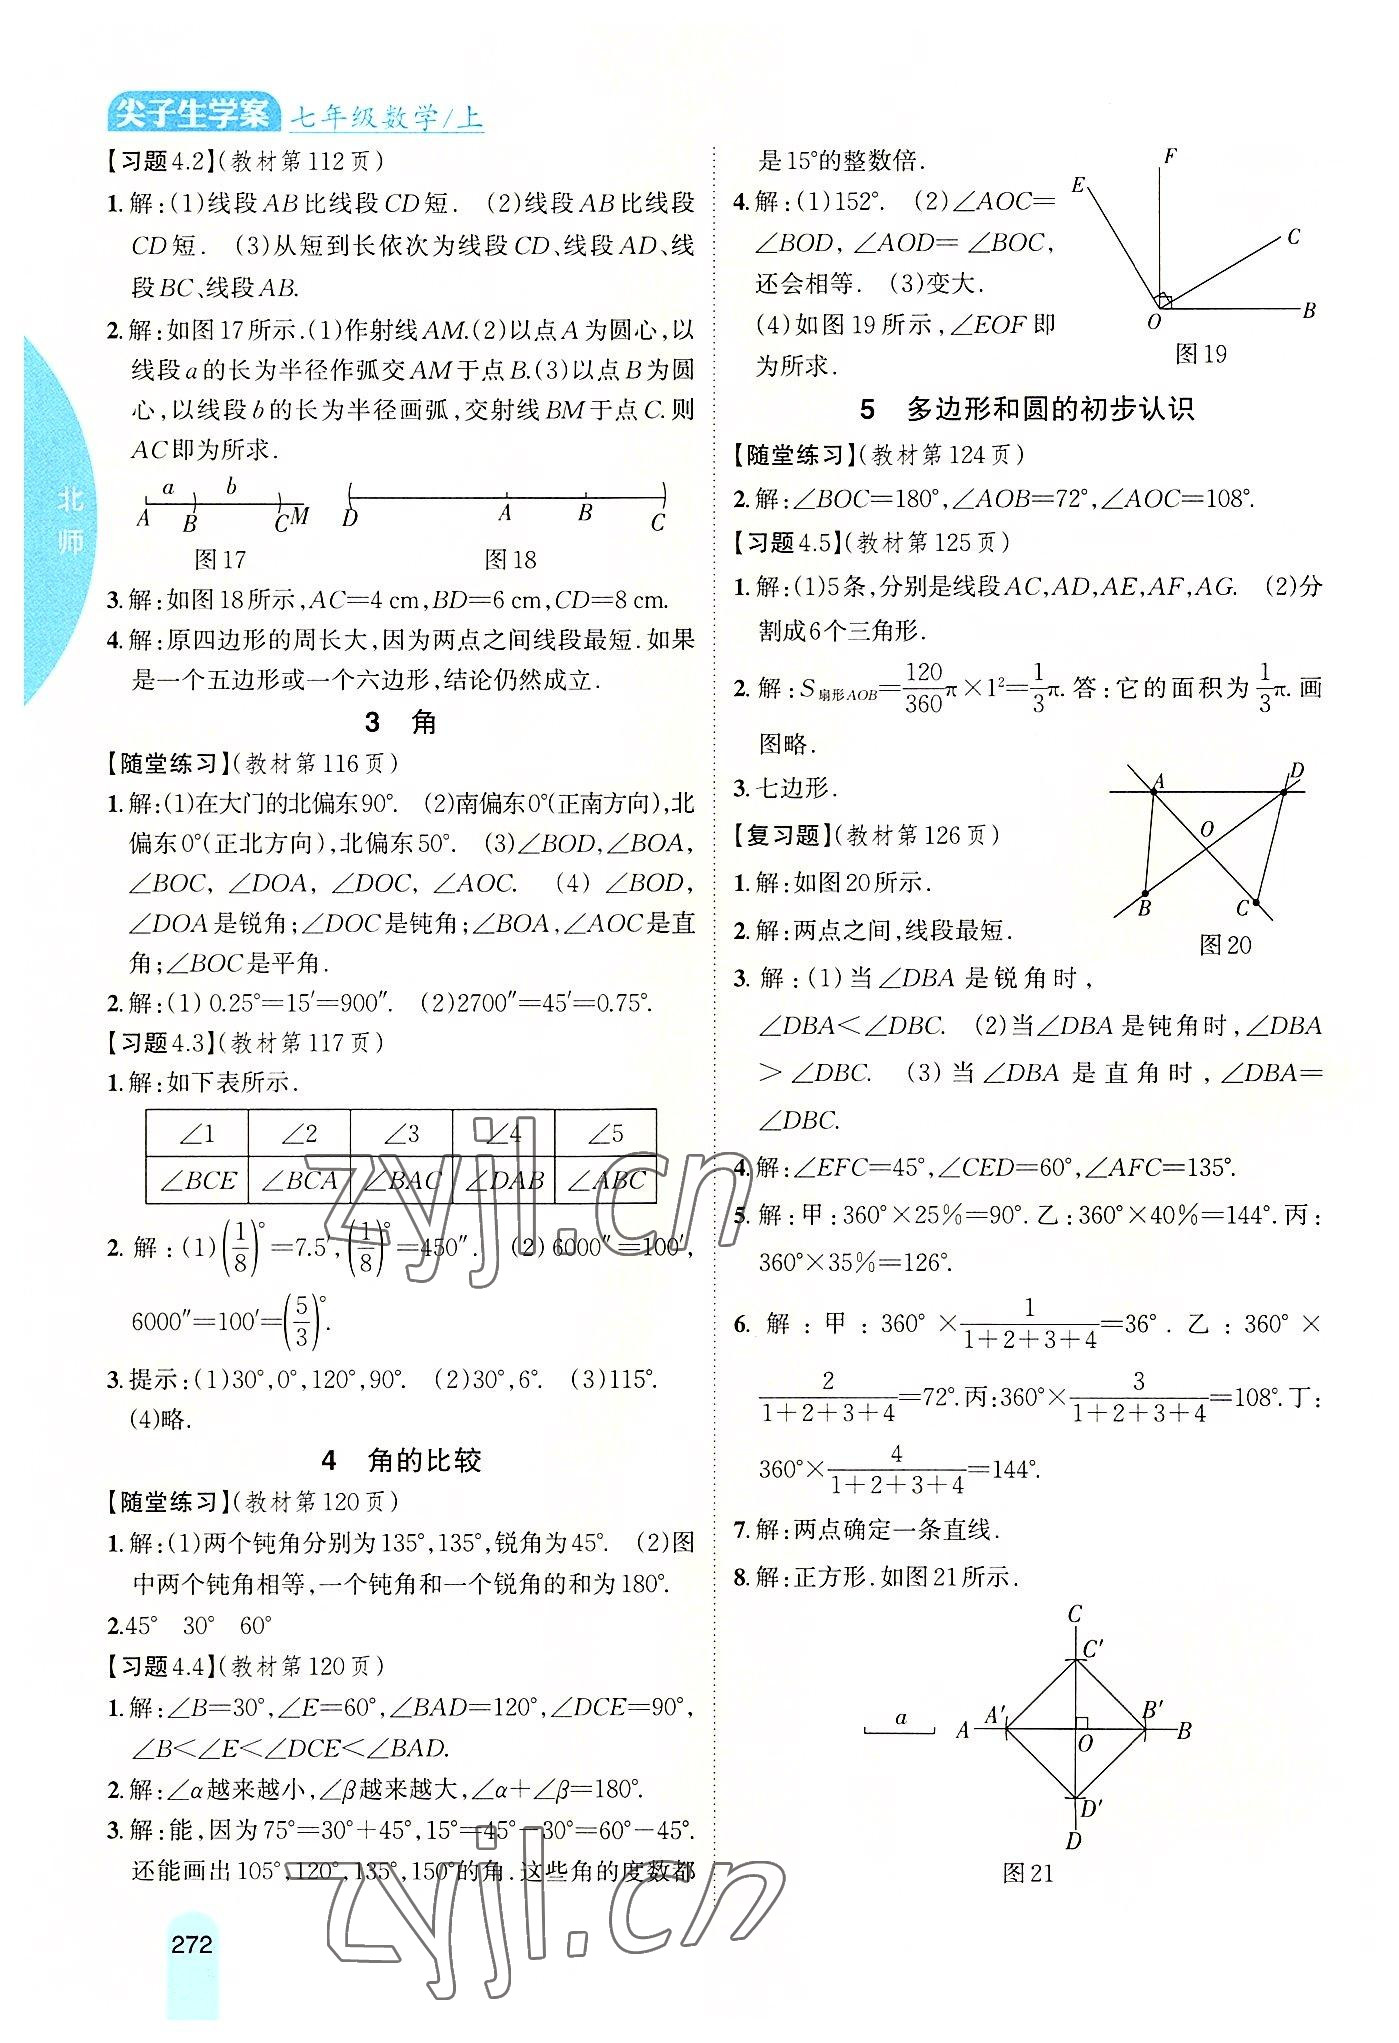 尖子生学案 七年级数学/上
【习题4.2】(教材第112页)
1.解:(1)线段AB比线段CD短. (2)线段AB比线段
CD短. (3)从短到长依次为线段CD、线段AD、线
段BC、线段AB.
2.解:如图17所示.(1)作射线AM.(2)以点A为圆心,以
线段a的长为半径作弧交AM于点B.(3)以点B为圆
心,以线段b的长为半径画弧,交射线BM于点C.则
AC即为所求.
a b
A B C M D A B C
图17 图18
3.解:如图18所示,AC=4 cm,BD=6 cm,CD=8 cm.
4.解:原四边形的周长大,因为两点之间线段最短.如果
是一个五边形或一个六边形,结论仍然成立.
3 角
【随堂练习】(教材第116页)
1.解:(1)在大门的北偏东90°. (2)南偏东0°(正南方向),北
偏东0°(正北方向),北偏东50°. (3)∠BOD,∠BOA,
∠BOC, ∠DOA, ∠DOC, ∠AOC. (4) ∠BOD,
∠DOA是锐角;∠DOC是钝角;∠BOA,∠AOC是直
角;∠BOC是平角.
2.解:(1) 0.25°=15′=900″. (2)2700″=45′=0.75°.
【习题4.3】(教材第117页)
1.解:如下表所示.
∠1 ∠2 ∠3 ∠4 ∠5
∠BCE ∠BCA ∠BAC ∠DAB ∠ABC
2.解:(1)(1/8)°=7.5′,(1/8)°=450″. (2)6000″=100′,
6000″=100′=(5/3)°.
3.提示:(1)30°,0°,120°,90°. (2)30°,6°. (3)115°.
(4)略.
4 角的比较
【随堂练习】(教材第120页)
1.解:(1)两个钝角分别为135°,135°,锐角为45°. (2)图
中两个钝角相等,一个钝角和一个锐角的和为180°.
2.45° 30° 60°
【习题4.4】(教材第120页)
1.解:∠B=30°,∠E=60°,∠BAD=120°,∠DCE=90°,
∠B<∠E<∠DCE<∠BAD.
2.解:∠α越来越小,∠β越来越大,∠α+∠β=180°.
3.解:能,因为75°=30°+45°,15°=45°-30°=60°-45°.
还能画出105°,120°,135°,150°的角.这些角的度数都
272
北师
是15°的整数倍.
4.解:(1)152°. (2)∠AOC=
∠BOD, ∠AOD= ∠BOC,
还会相等. (3)变大.
(4)如图19所示,∠EOF即
为所求.
F
E
C
O B
图19
5 多边形和圆的初步认识
【随堂练习】(教材第124页)
2.解:∠BOC=180°,∠AOB=72°,∠AOC=108°.
【习题4.5】(教材第125页)
1.解:(1)5条,分别是线段AC,AD,AE,AF,AG. (2)分
割成6个三角形.
2.解:S扇形AOB=120/360π×1²=1/3π.答:它的面积为1/3π.画
图略.
3.七边形.
【复习题】(教材第126页)
1.解:如图20所示.
2.解:两点之间,线段最短.
A D
O
B C
图20
3.解:(1)当∠DBA是锐角时,
∠DBA<∠DBC. (2)当∠DBA是钝角时,∠DBA
>∠DBC. (3)当∠DBA是直角时,∠DBA=
∠DBC.
4.解:∠EFC=45°,∠CED=60°,∠AFC=135°.
5.解:甲:360°×25%=90°.乙:360°×40%=144°.丙:
360°×35%=126°.
6.解:甲:360°×1/(1+2+3+4)=36°.乙:360°×
2/(1+2+3+4)=72°.丙:360°×3/(1+2+3+4)=108°.丁:
360°×4/(1+2+3+4)=144°.
7.解:两点确定一条直线.
8.解:正方形.如图21所示.
C
C′
a A A′ O B′ B
D′
D
图21
zyjl.cn
zyjl.cn